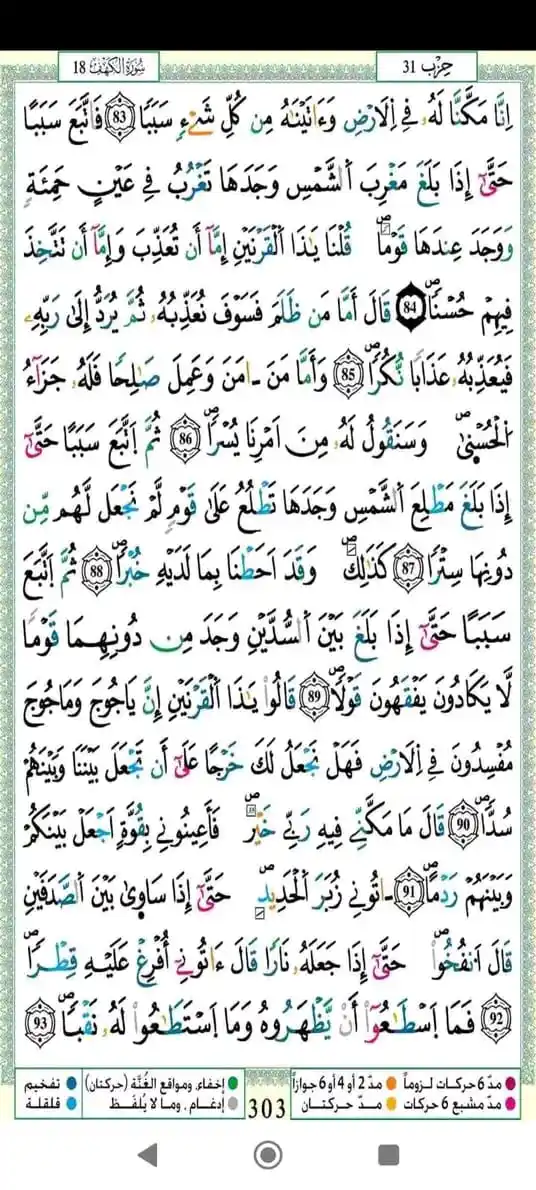 سُورَةُ الْكَهْفِ 18
حِزْب 31
اِنَّا مَكَّنَّا لَهُۥ فِے اِ۬لَارْضِ وَءَاتَيْنَٰهُ مِن كُلِّ شَےْءٖ سَبَباٗ 83 فَاتَّبَعَ سَبَباً
حَتَّىٰٓ إِذَا بَلَغَ مَغْرِبَ اَ۬لشَّمْسِ وَجَدَهَا تَغْرُبُ فِے عَيْنٍ حَمِئَةٖ
وَوَجَدَ عِندَهَا قَوْماٗۖ قُلْنَا يَٰذَا اَ۬لْقَرْنَيْنِ إِمَّآ أَن تُعَذِّبَ وَإِمَّآ أَن تَتَّخِذَ
فِيهِمْ حُسْناٗۖ 84 قَالَ أَمَّا مَن ظَلَمَ فَسَوْفَ نُعَذِّبُهُۥ ثُمَّ يُرَدُّ إِلَىٰ رَبِّهِۦ
فَيُعَذِّبُهُۥ عَذَاباٗ نُّكُراٗۖ 85 وَأَمَّا مَنَ ـ اٰمَنَ وَعَمِلَ صَٰلِحاٗ فَلَهُۥ جَزَآءُ
اُ۬لْحُسْنۭىٰۖ وَسَنَقُولُ لَهُۥ مِنَ اَمْرِنَا يُسْراٗۖ 86 ثُمَّ اَ۪تَّبَعَ سَبَباً حَتَّىٰٓ
إِذَا بَلَغَ مَطْلِعَ اَ۬لشَّمْسِ وَجَدَهَا تَطْلُعُ عَلَىٰ قَوْمٖ لَّمْ نَجْعَل لَّهُم مِّن
دُونِهَا سِتْراٗۖ 87 كَذَٰلِكَۖ وَقَدَ اَحَطْنَا بِمَا لَدَيْهِ خُبْراٗۖ 88 ثُمَّ اَ۪تَّبَعَ
سَبَباً حَتَّىٰٓ إِذَا بَلَغَ بَيْنَ اَ۬لسُّدَّيْنِ وَجَدَ مِن دُونِهِمَا قَوْماٗ
لَّا يَكَادُونَ يَفْقَهُونَ قَوْلاٗۖ 89 قَالُواْ يَٰذَا اَ۬لْقَرْنَيْنِ إِنَّ يَاجُوجَ وَمَاجُوجَ
مُفْسِدُونَ فِے اِ۬لَارْضِ فَهَلْ نَجْعَلُ لَكَ خَرْجاً عَلَىٰٓ أَن تَجْعَلَ بَيْنَنَا وَبَيْنَهُمْ
سُدّاٗۖ 90 قَالَ مَا مَكَّنِّے فِيهِ رَبِّے خَيْرٞۖ فَأَعِينُونِے بِقُوَّةٍ اَجْعَلْ بَيْنَكُمْ
وَبَيْنَهُمْ رَدْماًۖ 91 ـ اتُونِے زُبَرَ اَ۬لْحَدِيدِۖ حَتَّىٰٓ إِذَا سَاوٜىٰ بَيْنَ اَ۬لصَّدَفَيْنِ
قَالَ اَ۟نفُخُواْۖ حَتَّىٰٓ إِذَا جَعَلَهُۥ نَاراٗ قَالَ ءَاتُونِےٓ أُفْرِغْ عَلَيْهِ قِطْراٗۖ
92 فَمَا اَ۪سْطَٰعُوٓاْ أَنْ يَّظْهَرُوهُ وَمَا اَ۪سْتَطَٰعُواْ لَهُۥ نَقْباٗۖ 93
مدّ 6 حركات لزوماً مدّ 2 أو 4 أو 6 جوازاً
مدّ مشبع 6 حركات مدّ حركتان
303
إخفاء، ومواقع الغُنَّة (حركتان) تفخيم
إدغام، وما لا يُلفَظ قلقلة